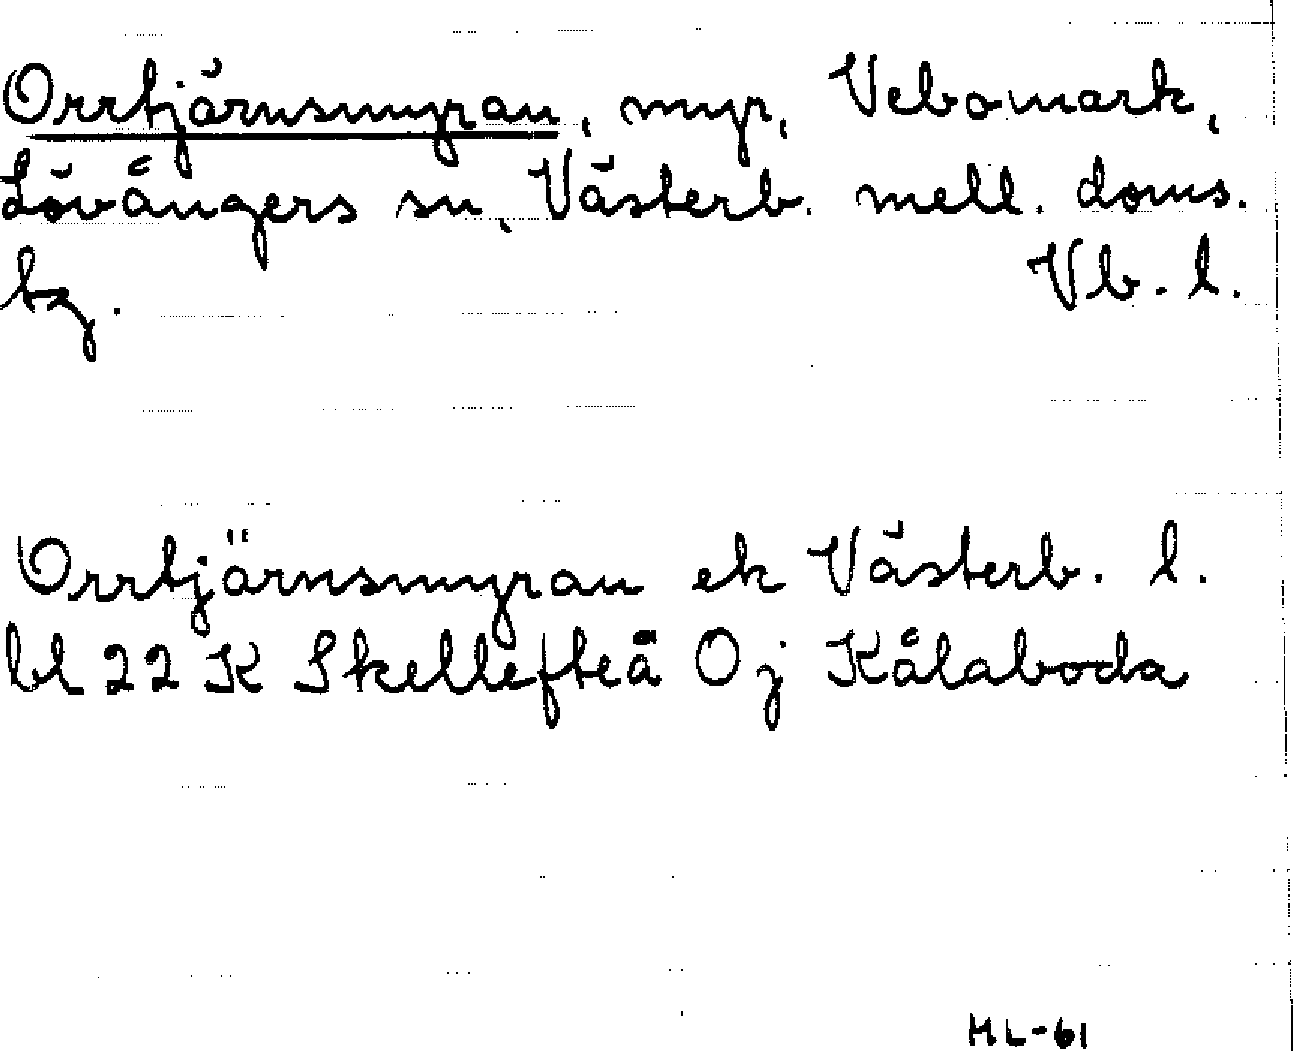 Orrtjärnsmyran, myr, Vebomark,
Lövångers sn, Västerb. mell. doms.
bz. Vb. l.
Orrtjärnsmyran ek Västerb. l.
bl 22 K Skellefteå Oj Kålaboda
HL-61